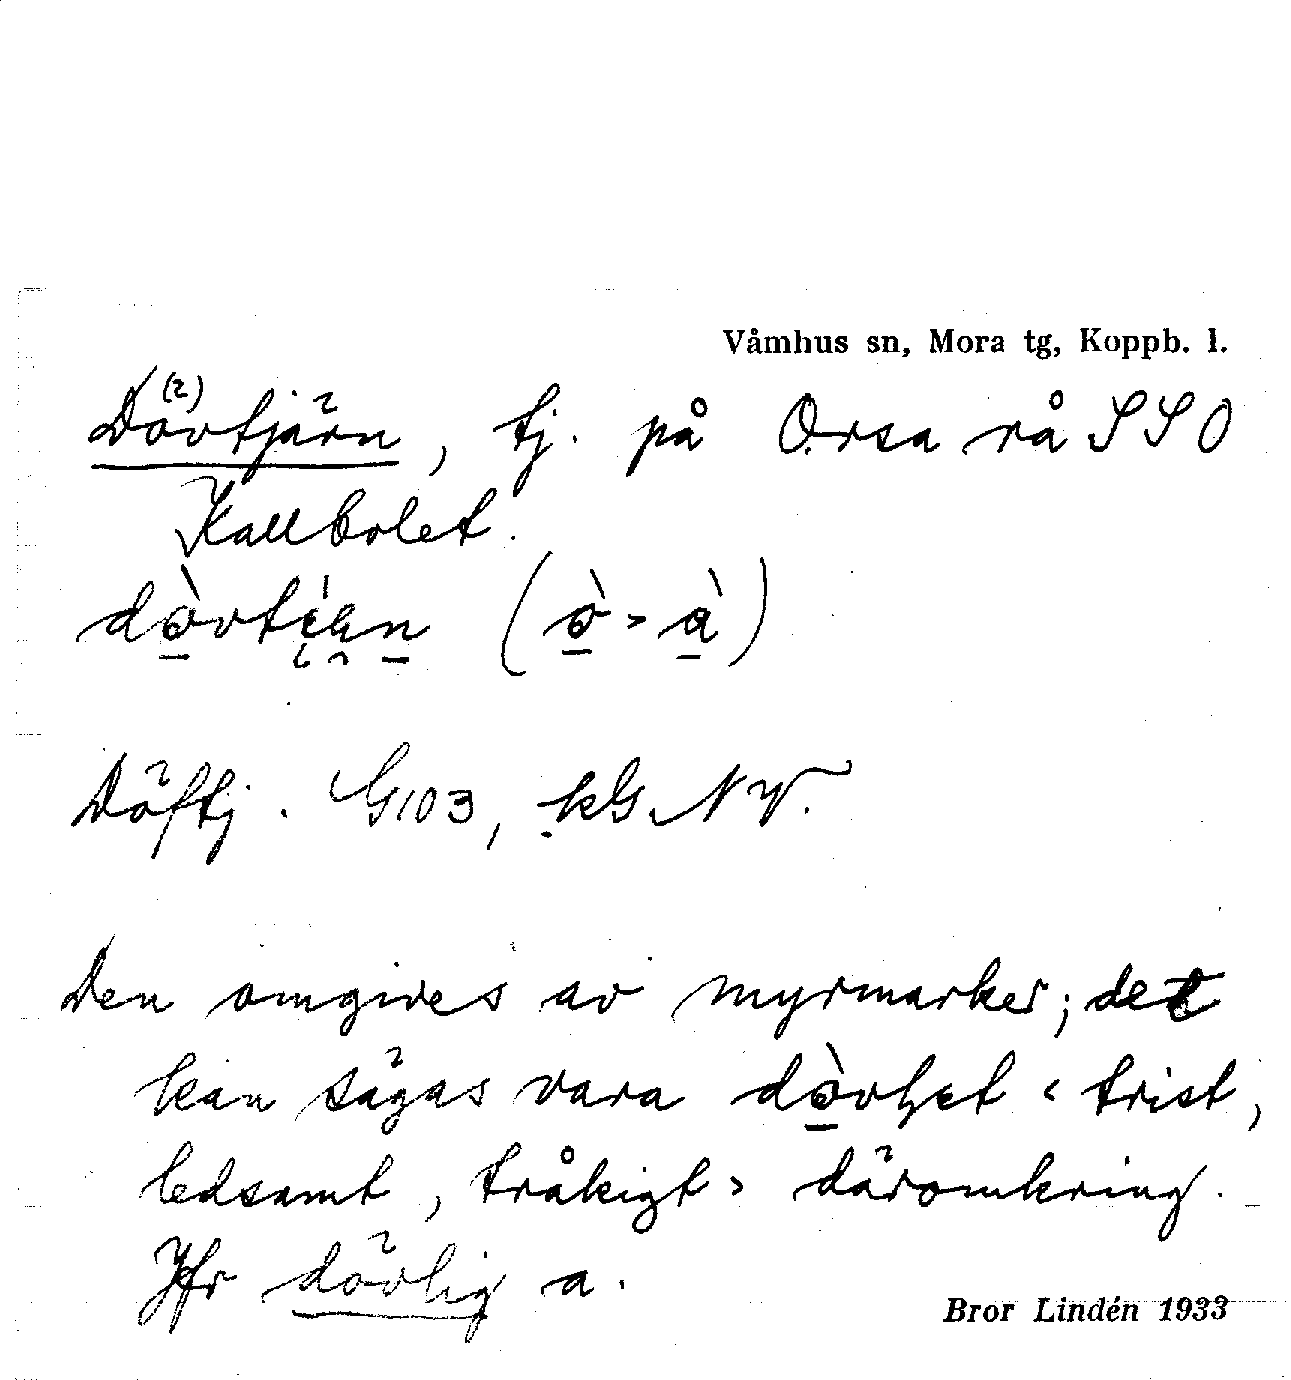 Våmhus sn, Mora tg, Koppb. l.
Dövtjärn, tj. på Orsa rå SSO
Kallbolet.
Döftj. G103, kG. NV.
Den omgives av myrmarker; det
kan sägas vara ‹ trist,
ledsamt, tråkigt › däromkring.
Jfr dövlig a.
Bror Lindén 1933